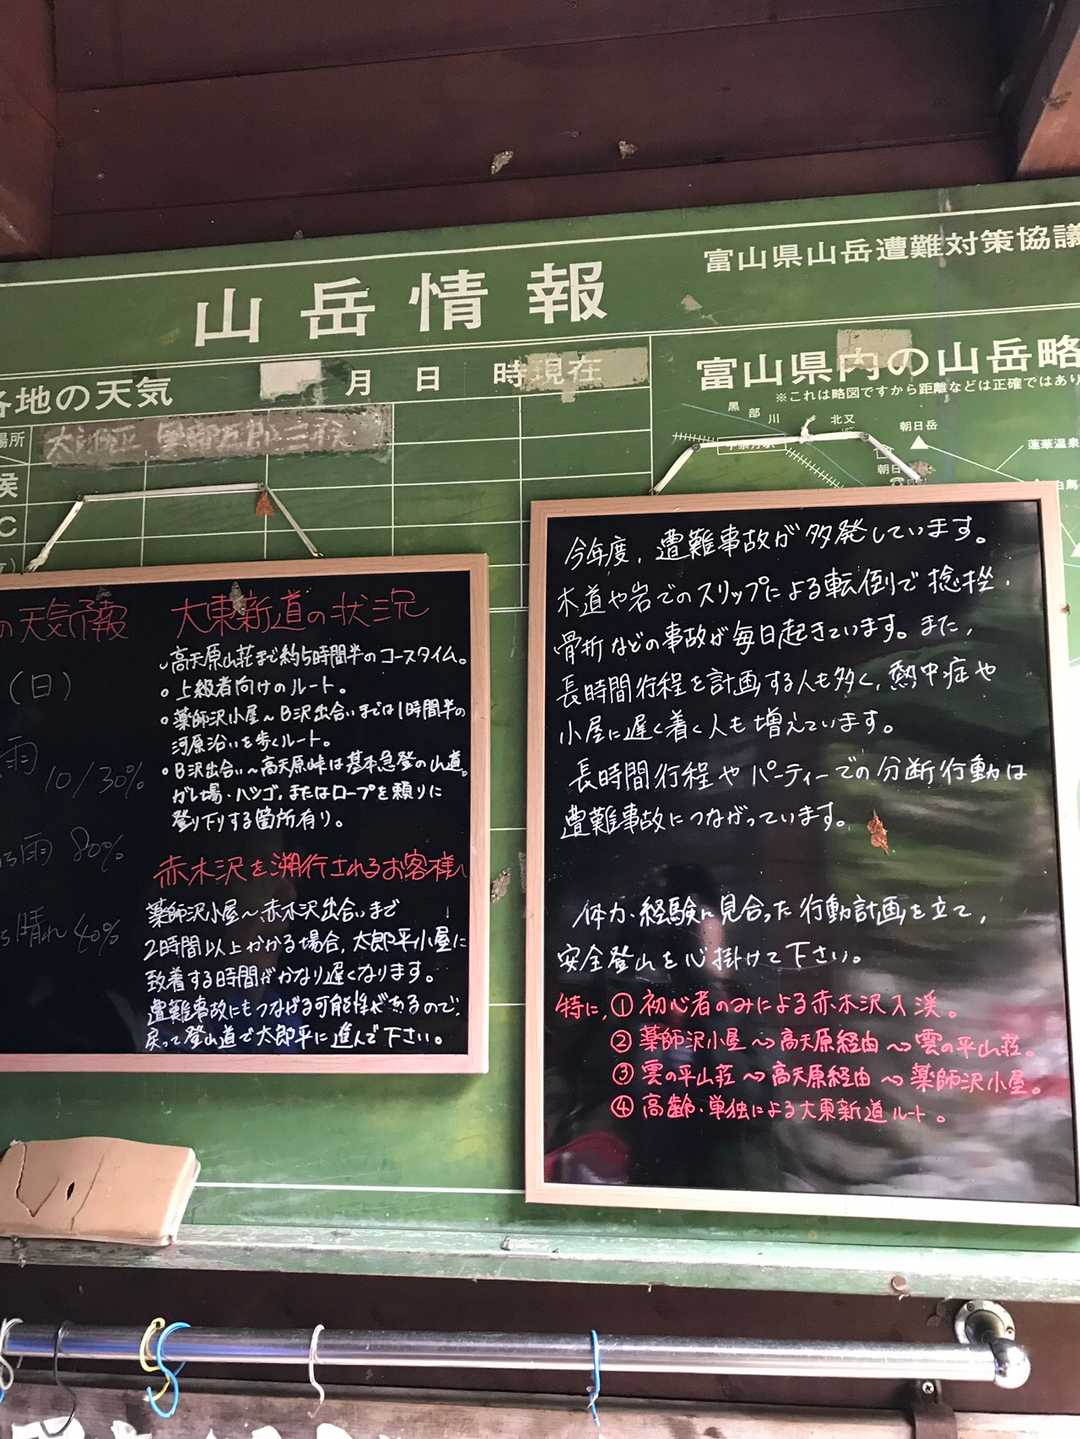 山岳情報
富山県山岳遭難対策協議
各地の天気
月 日 時現在
富山県内の山岳略
※これは略図ですから距離などは正確ではあり
場所
候
黒部川
北又
朝日岳
蓮華温泉
朝日
白馬
の天気予報
(日)
雨
10/30%
雨 80%
晴れ 40%
大東新道の状況
高天原山荘まで約5時間半のコースタイム。
○上級者向けのルート。
○薬師沢小屋~B沢出合いまでは1時間半の
河原沿いを歩くルート。
○B沢出合い~高天原峠は基本急登の山道。
ガレ場・ハシゴ、またはロープを頼りに
登り下りする箇所有り。
赤木沢を遡行されるお客様へ
薬師沢小屋~赤木沢出合いまで
2時間以上かかる場合、太郎平小屋に
到着する時間がかなり遅くなります。
遭難事故にもつながる可能性があるので、
戻って登山道で太郎平に進んで下さい。
今年度、遭難事故が多発しています。
木道や岩でのスリップによる転倒で捻挫、
骨折などの事故が毎日起きています。また、
長時間行程を計画する人も多く、熱中症や
小屋に遅く着く人も増えています。
長時間行程やパーティーでの分断行動は
遭難事故につながっています。
体力・経験に見合った行動計画を立て、
安全登山を心掛けて下さい。
特に、①初心者のみによる赤木沢入渓。
②薬師沢小屋~高天原経由~雲の平山荘。
③雲の平山荘~高天原経由~薬師沢小屋。
④高齢・単独による大東新道ルート。